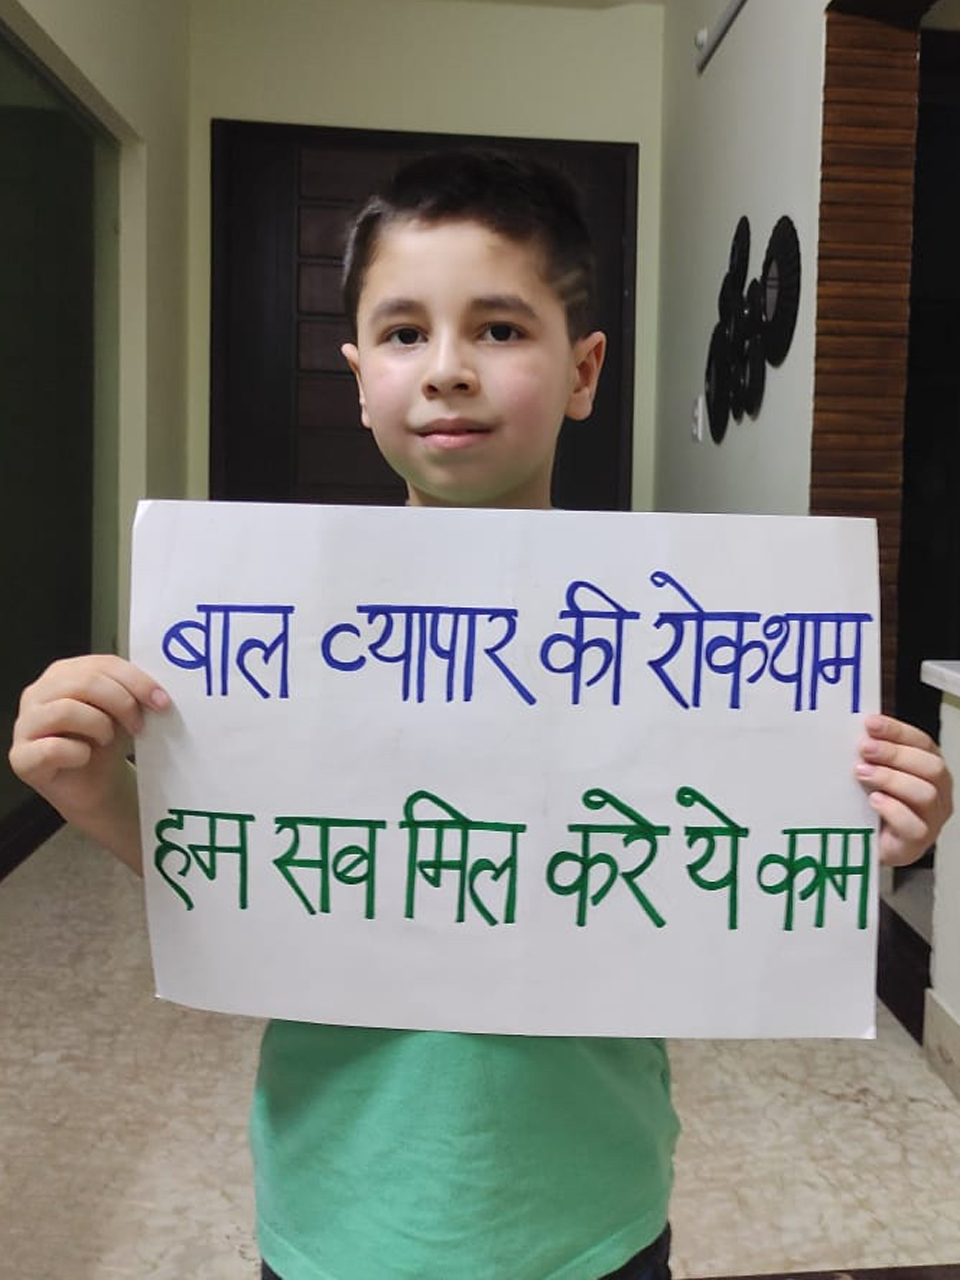 बाल व्यापार की रोकथाम
हम सब मिल करे ये काम